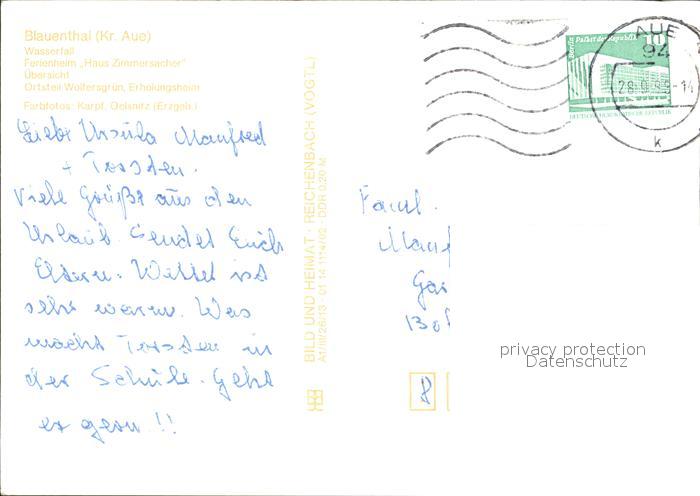 Blauenthal (Kr. Aue)
Wasserfall
Ferienheim „Haus Zimmersacher"
Übersicht
Ortsteil Wolfersgrün, Erholungsheim
Farbfotos: Karpf, Oelsnitz (Erzgeb.)
Liebe Ursula Manfred
+ Torsten.
Viele Grüße aus den
Urlaub sendet Euch
Eltern. Wetter ist
sehr warm. Was
macht Torsten in
der Schule. Geht
er gern !!
BILD UND HEIMAT · REICHENBACH (VOGTL)
A1/III/26/13 · 01 14 1114/02 DDR 0,20 M
Palast der Republik
10
DEUTSCHE DEMOKRATISCHE REPUBLIK
AUE
94
k
Faml.
Manf
Gar
130
8
privacy protection
Datenschutz